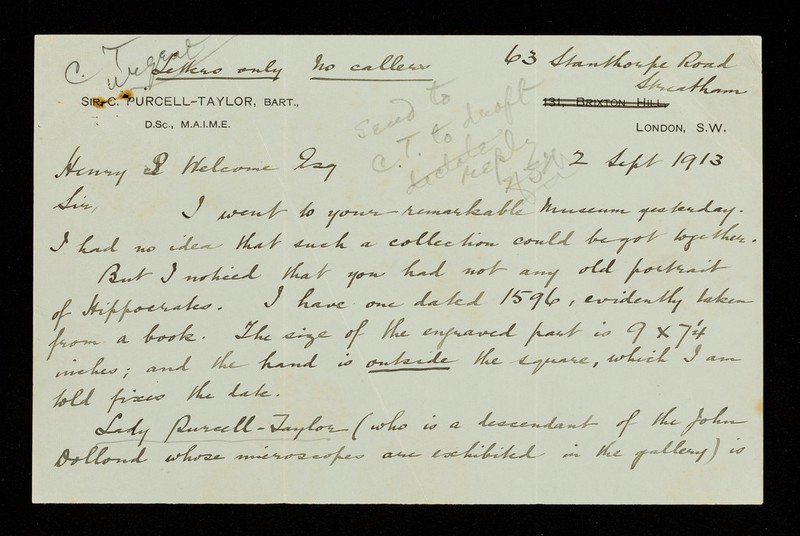 C. T.
urgent
Letters only No callers
63 Stanthorpe Road
Streatham
SIR C. PURCELL-TAYLOR, BART.,
D.Sc., M.A.I.M.E.
131, BRIXTON HILL,
LONDON, S.W.
Send to
C.T. to draft
reply
2 Sept 1913
Henry S Welcome Esq
Sir,
I went to your remarkable Museum yesterday.
I had no idea that such a collection could be got together.
But I noticed that you had not any old portrait
of Hippocrates. I have one dated 1596, evidently taken
from a book. The size of the engraved part is 9 x 7¼
inches; and the hand is outside the square, which I am
told fixes the date.
Lady Purcell-Taylor (who is a descendant of the John
Dollond whose microscopes are exhibited in the gallery) is